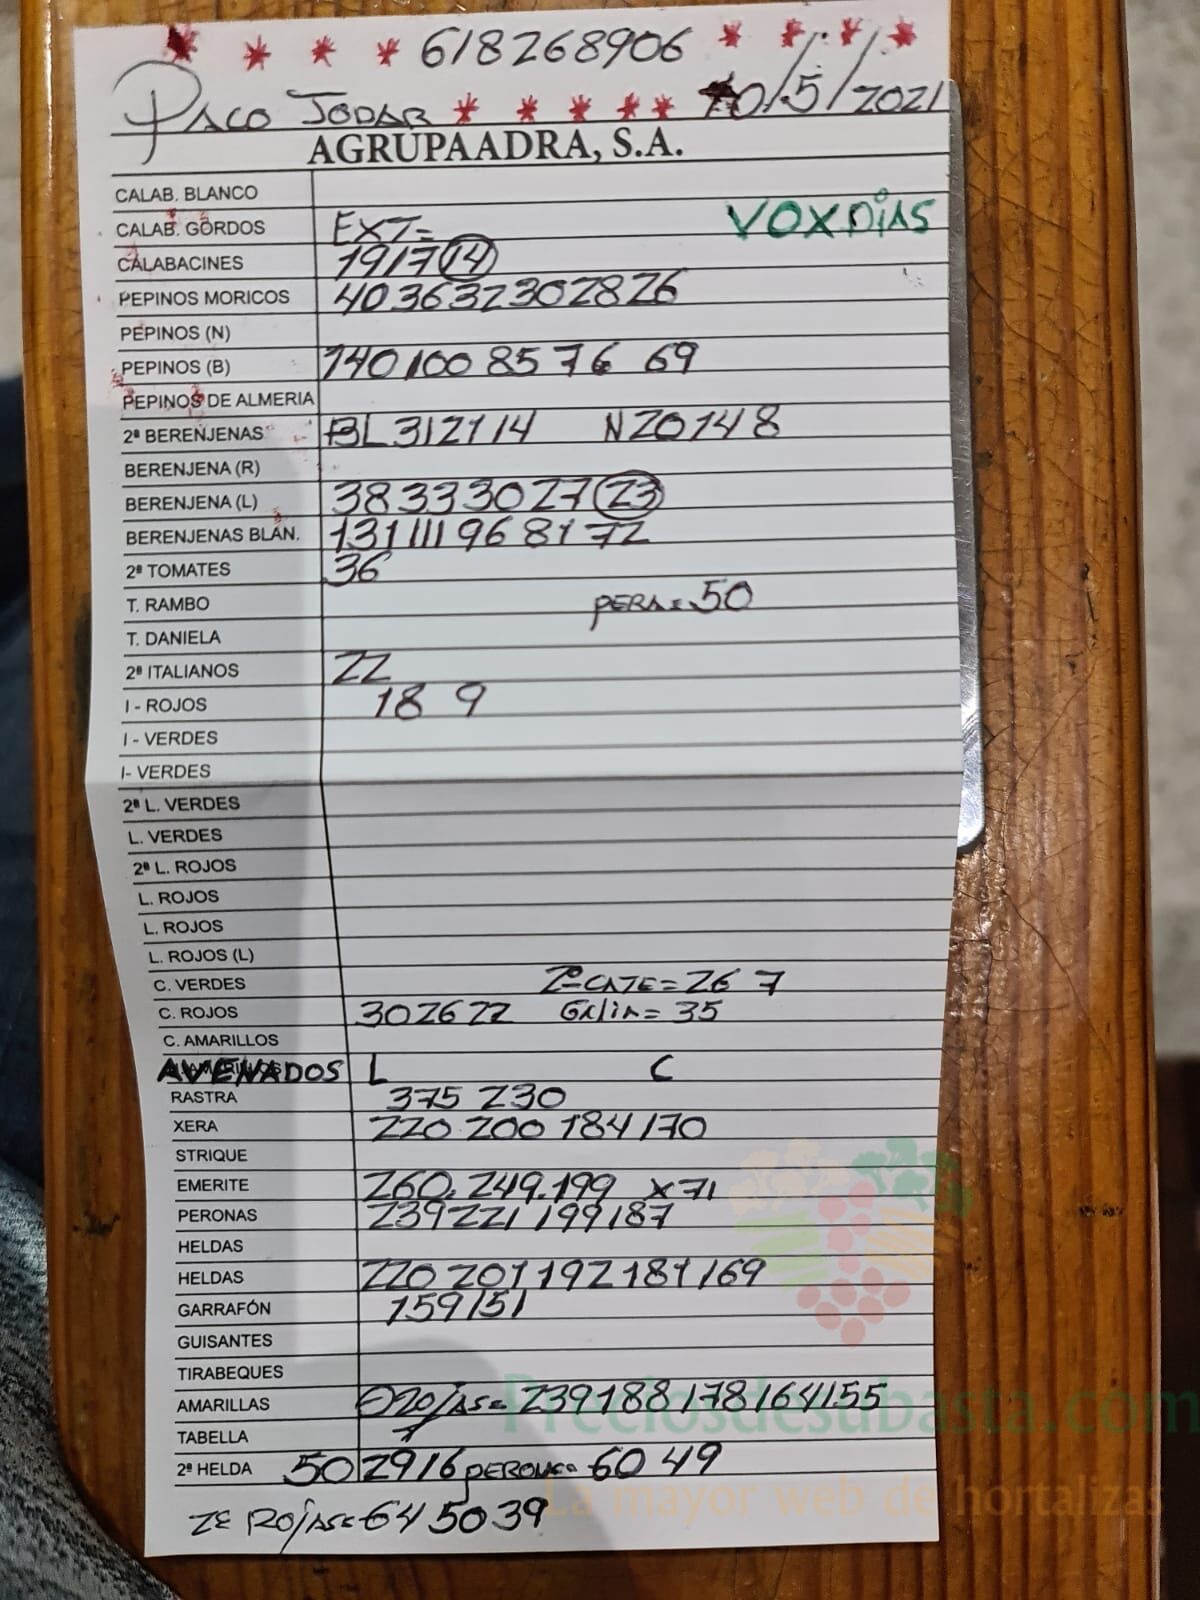 * * * * 618268906 * * * *
PACO JODAR * * * * * 10/5/2021
AGRUPAADRA, S.A.
CALAB. BLANCO
CALAB. GORDOS EXT= VOXDiAS
CALABACINES 1917 14
PEPINOS MORICOS 403632302826
PEPINOS (N)
PEPINOS (B) 140 100 85 76 69
PEPINOS DE ALMERIA
2ª BERENJENAS BL312114 N20148
BERENJENA (R)
BERENJENA (L) 38333027 23
BERENJENAS BLAN. 131 111 96 81 72
2ª TOMATES 36
T. RAMBO PERA= 50
T. DANIELA
2ª ITALIANOS 22
I - ROJOS 18 9
I - VERDES
I- VERDES
2ª L. VERDES
L. VERDES
2ª L. ROJOS
L. ROJOS
L. ROJOS
L. ROJOS (L)
C. VERDES 2º CATE= 26 7
C. ROJOS 302622 GALIA= 35
C. AMARILLOS
AVENADOS L C
RASTRA 375 230
XERA 220 200 184 170
STRIQUE
EMERITE 260. 249. 199 X71
PERONAS 239 221 199 187
HELDAS
HELDAS 220 201 192 181 169
GARRAFÓN 159 151
GUISANTES
TIRABEQUES
AMARILLAS ROJAS= 239 188 178 164 155
TABELLA
2ª HELDA 50 29 16 PERONA= 60 49
2ª ROJAS= 64 50 39
Preciosdesubasta.com
La mayor web de hortalizas